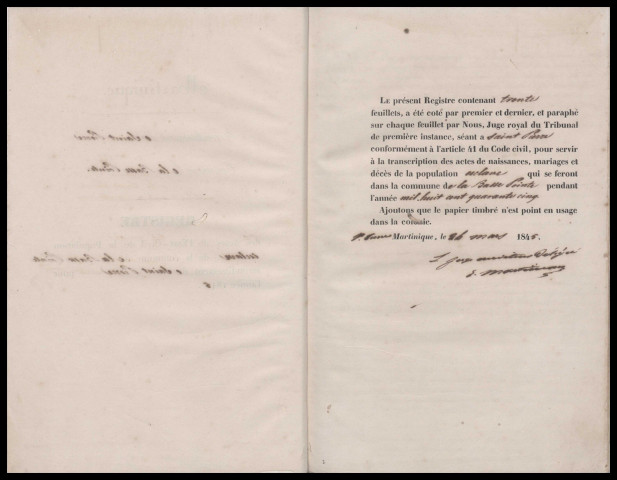 LE présent Registre contenant trente
feuillets, a été coté par premier et dernier, et paraphé
sur chaque feuillet par Nous, Juge royal du Tribunal
de première instance, séant a Saint Pierre
conformément à l'article 41 du Code civil, pour servir
à la transcription des actes de naissances, mariages et
décès de la population esclave qui se feront
dans la commune de la Basse Pointe pendant
l'année mil huit cent quarante cinq
Ajoutons que le papier timbré n'est point en usage
dans la colonie.
St. Pierre Martinique, le 26 mars 1845.